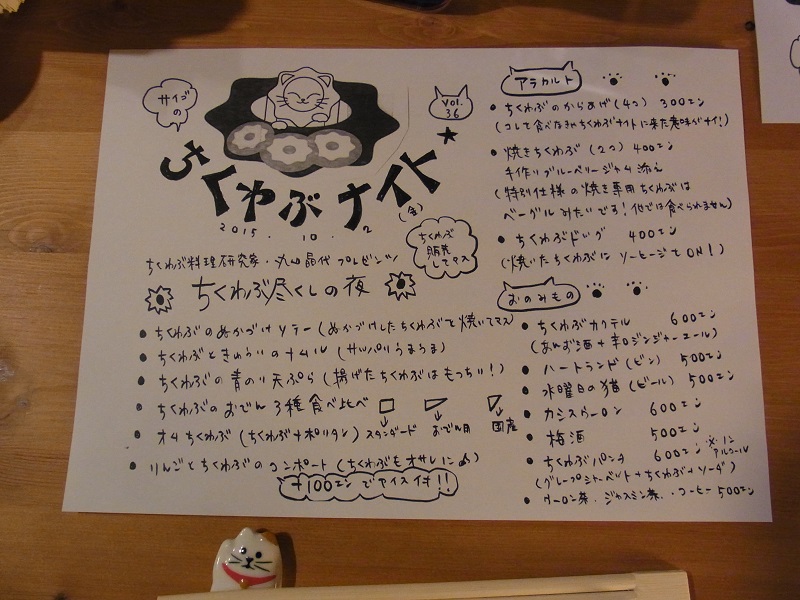 サイゴの
Vol.
36
ちくわぶナイト★
2015. 10. 2 (金)
ちくわぶ料理研究家・丸山晶代プレゼンツ
ちくわぶ
販売
してマス
ちくわぶ尽くしの夜
• ちくわぶのぬかづけソテー(ぬかづけしたちくわぶを焼いてマス)
• ちくわぶときゅうりのナムル(サッパリうまうま)
• ちくわぶの青のり天ぷら(揚げたちくわぶはもっちぃ!)
• ちくわぶのおでん3種食べ比べ
スタンダード おでん用 国産
• オムちくわぶ(ちくわぶナポリタン)
• りんごとちくわぶのコンポート(ちくわぶもオサレに)
+100エンでアイス付!!
アラカルト
• ちくわぶのからあげ(4コ) 300エン
(コレ食べなきゃちくわぶナイトに来た意味がナイ!)
• 焼きちくわぶ(2コ) 400エン
手作りブルーベリージャム添え
(特別仕様の焼き専用ちくわぶは
ベーグルみたいです!他では食べられません)
• ちくわぶドッグ 400エン
(焼いたちくわぶにソーセージをON!)
おのみもの
• ちくわぶカクテル 600エン
(あんず酒+辛口ジンジャーエール)
• ハートランド(ビン) 500エン
• 水曜日の猫(ビール) 500エン
• カシスウーロン 600エン
• 梅酒 500エン
• ちくわぶパンチ 600エン ※ノンアルコール
(グレープシャーベット+ちくわぶ+ソーダ)
• ウーロン茶・ジャスミン茶・コーヒー 500エン